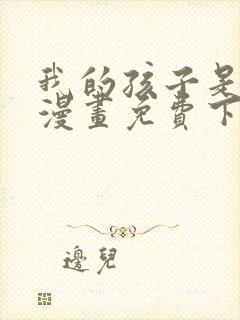 我的孩子是
漫畫免費下
邊兒